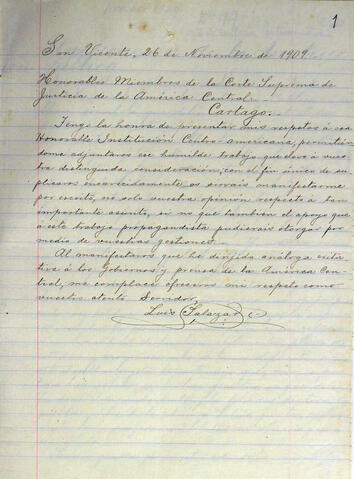 1
San Vicente, 26 de Noviembre de 1909
Honorables Miembros de la Corte Suprema de
Justicia de la América Central.
Cartago.
Tengo la honra de presentar mis respetos á esa
Honorable Institución Centro-americana, permitién
dome adjuntaros ese humilde trabajo que elevo á vues
tra distinguida consideración, con el fin único de su
plicaros encarecidamente, os sirváis manifestarme
por escrito, no solo vuestra opinión respecto á tan
importante asunto, si no que también el apoyo que
á este trabajo propagandista pudierais otorgar por
medio de vuestras gestiones.
Al manifestaros que he dirijido análoga exita
tiva á los Gobiernos y prensa de la América Cen
tral, me complace ofreceros mi respeto como
vuestro atento Servidor,
Luis Salazar